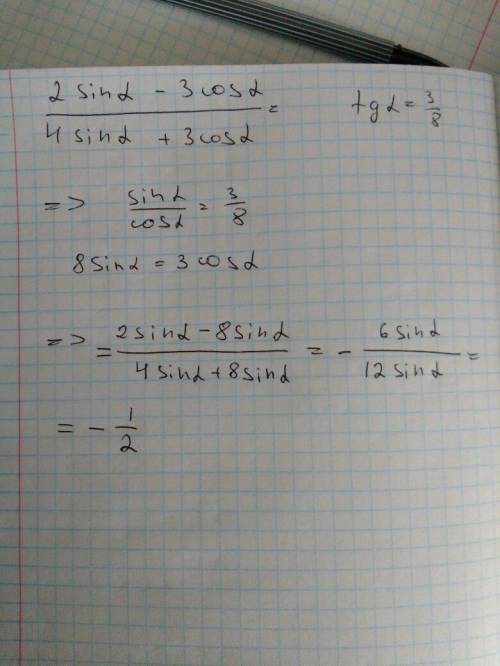 (2 sinα - 3 cosα)/(4 sinα + 3 cosα) = tgα = 3/8
=> sinα/cosα = 3/8
8 sinα = 3 cosα
=> = (2 sinα - 8 sinα)/(4 sinα + 8 sinα) = - 6 sinα/12 sinα =
= - 1/2